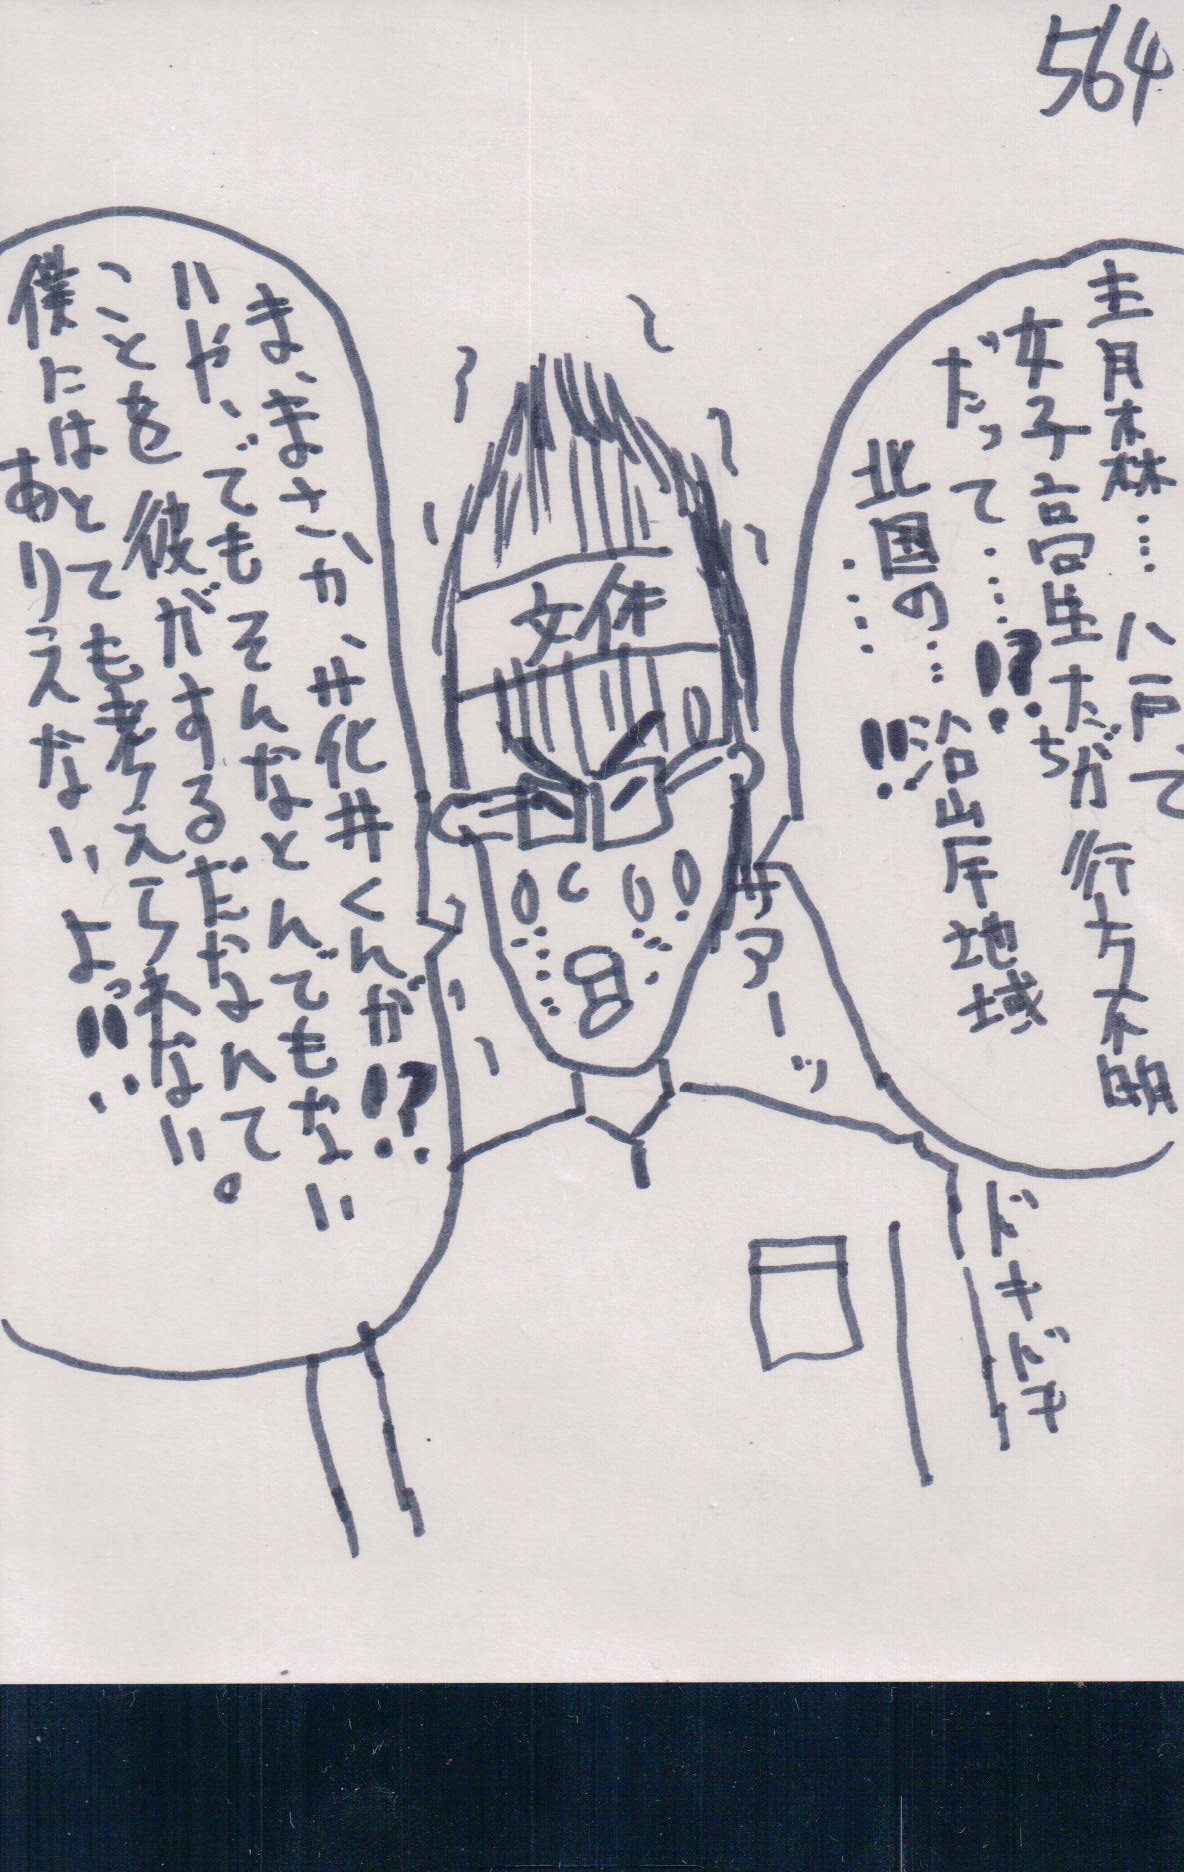 564
青森…八戸で
女子高生たちが行方不明
だって……!?
北国の…沿岸地域
……!!
文休
サアーッ
ドキドキ
ま、まさか、花井くんが!?
いや、でもそんなとんでもない
ことを彼がするだなんて。
僕にはとても考えて来ない。
ありえない、よ!!